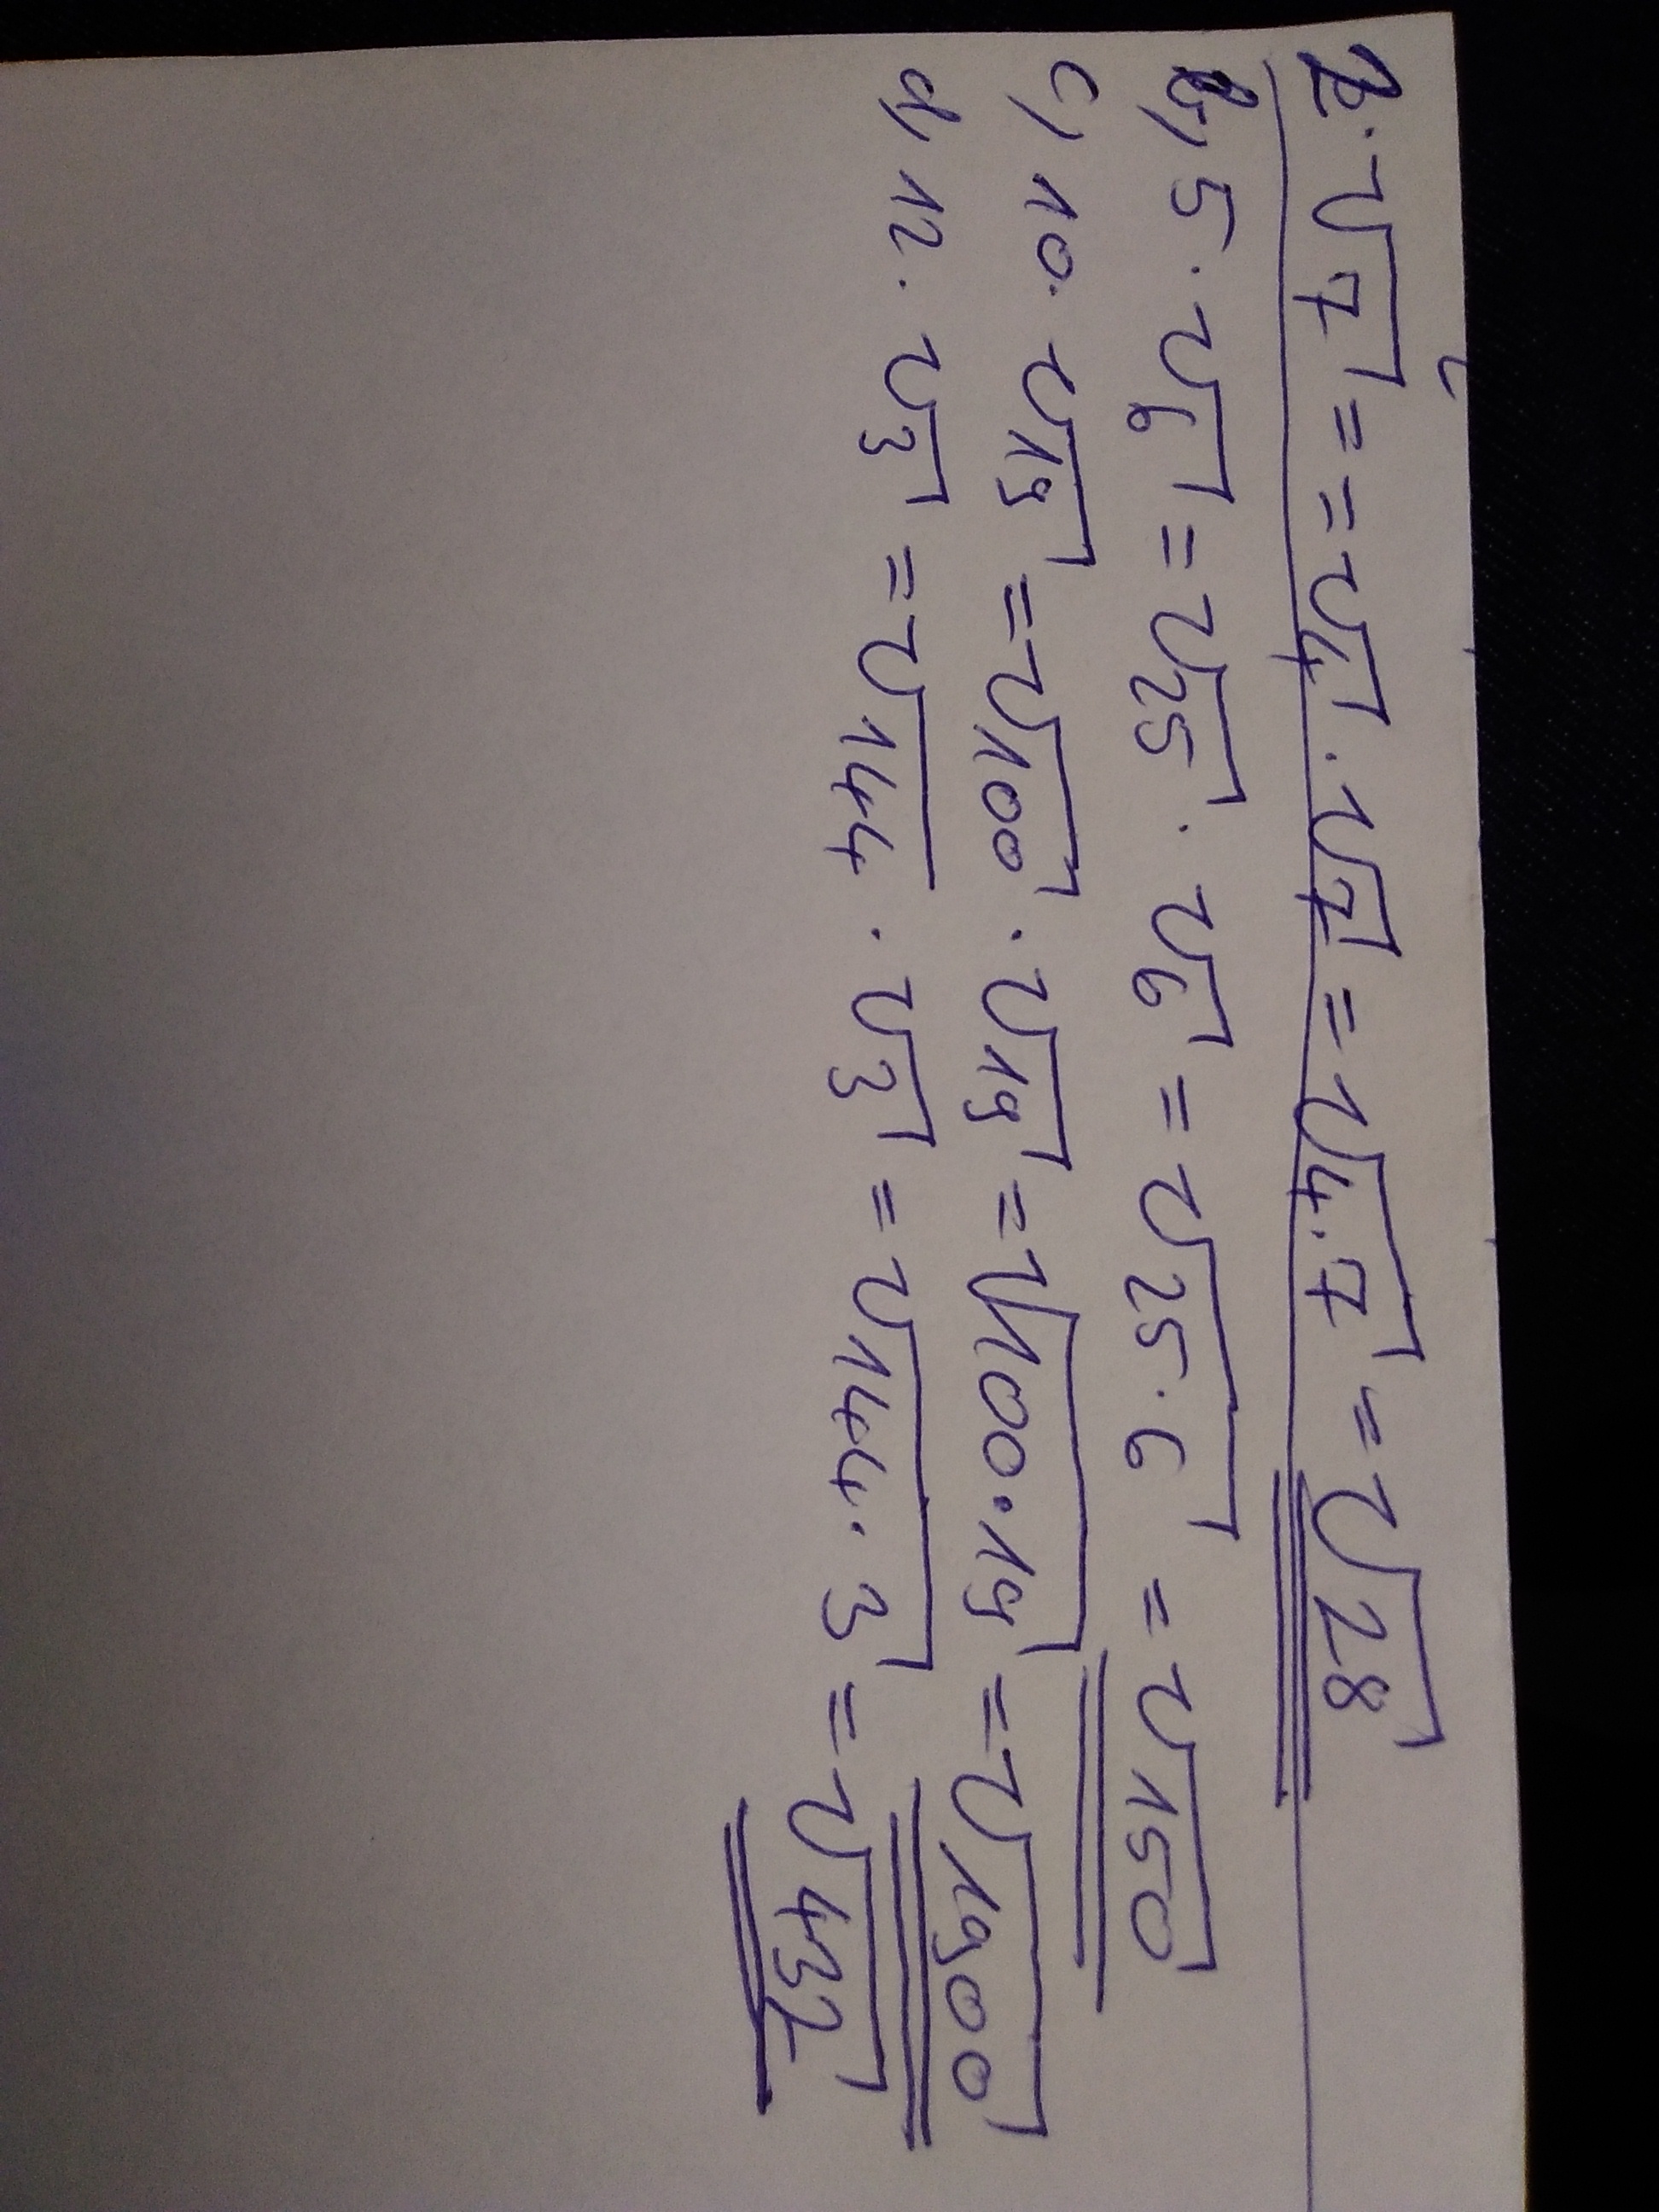 2·√7 = = √4 · √7 = √4·7 = √28
b, 5·√6 = √25 · √6 = √25·6 = √150
c, 10·√19 = √100 · √19 = √100·19 = √1900
d, 12·√3 = √144 · √3 = √144·3 = √432